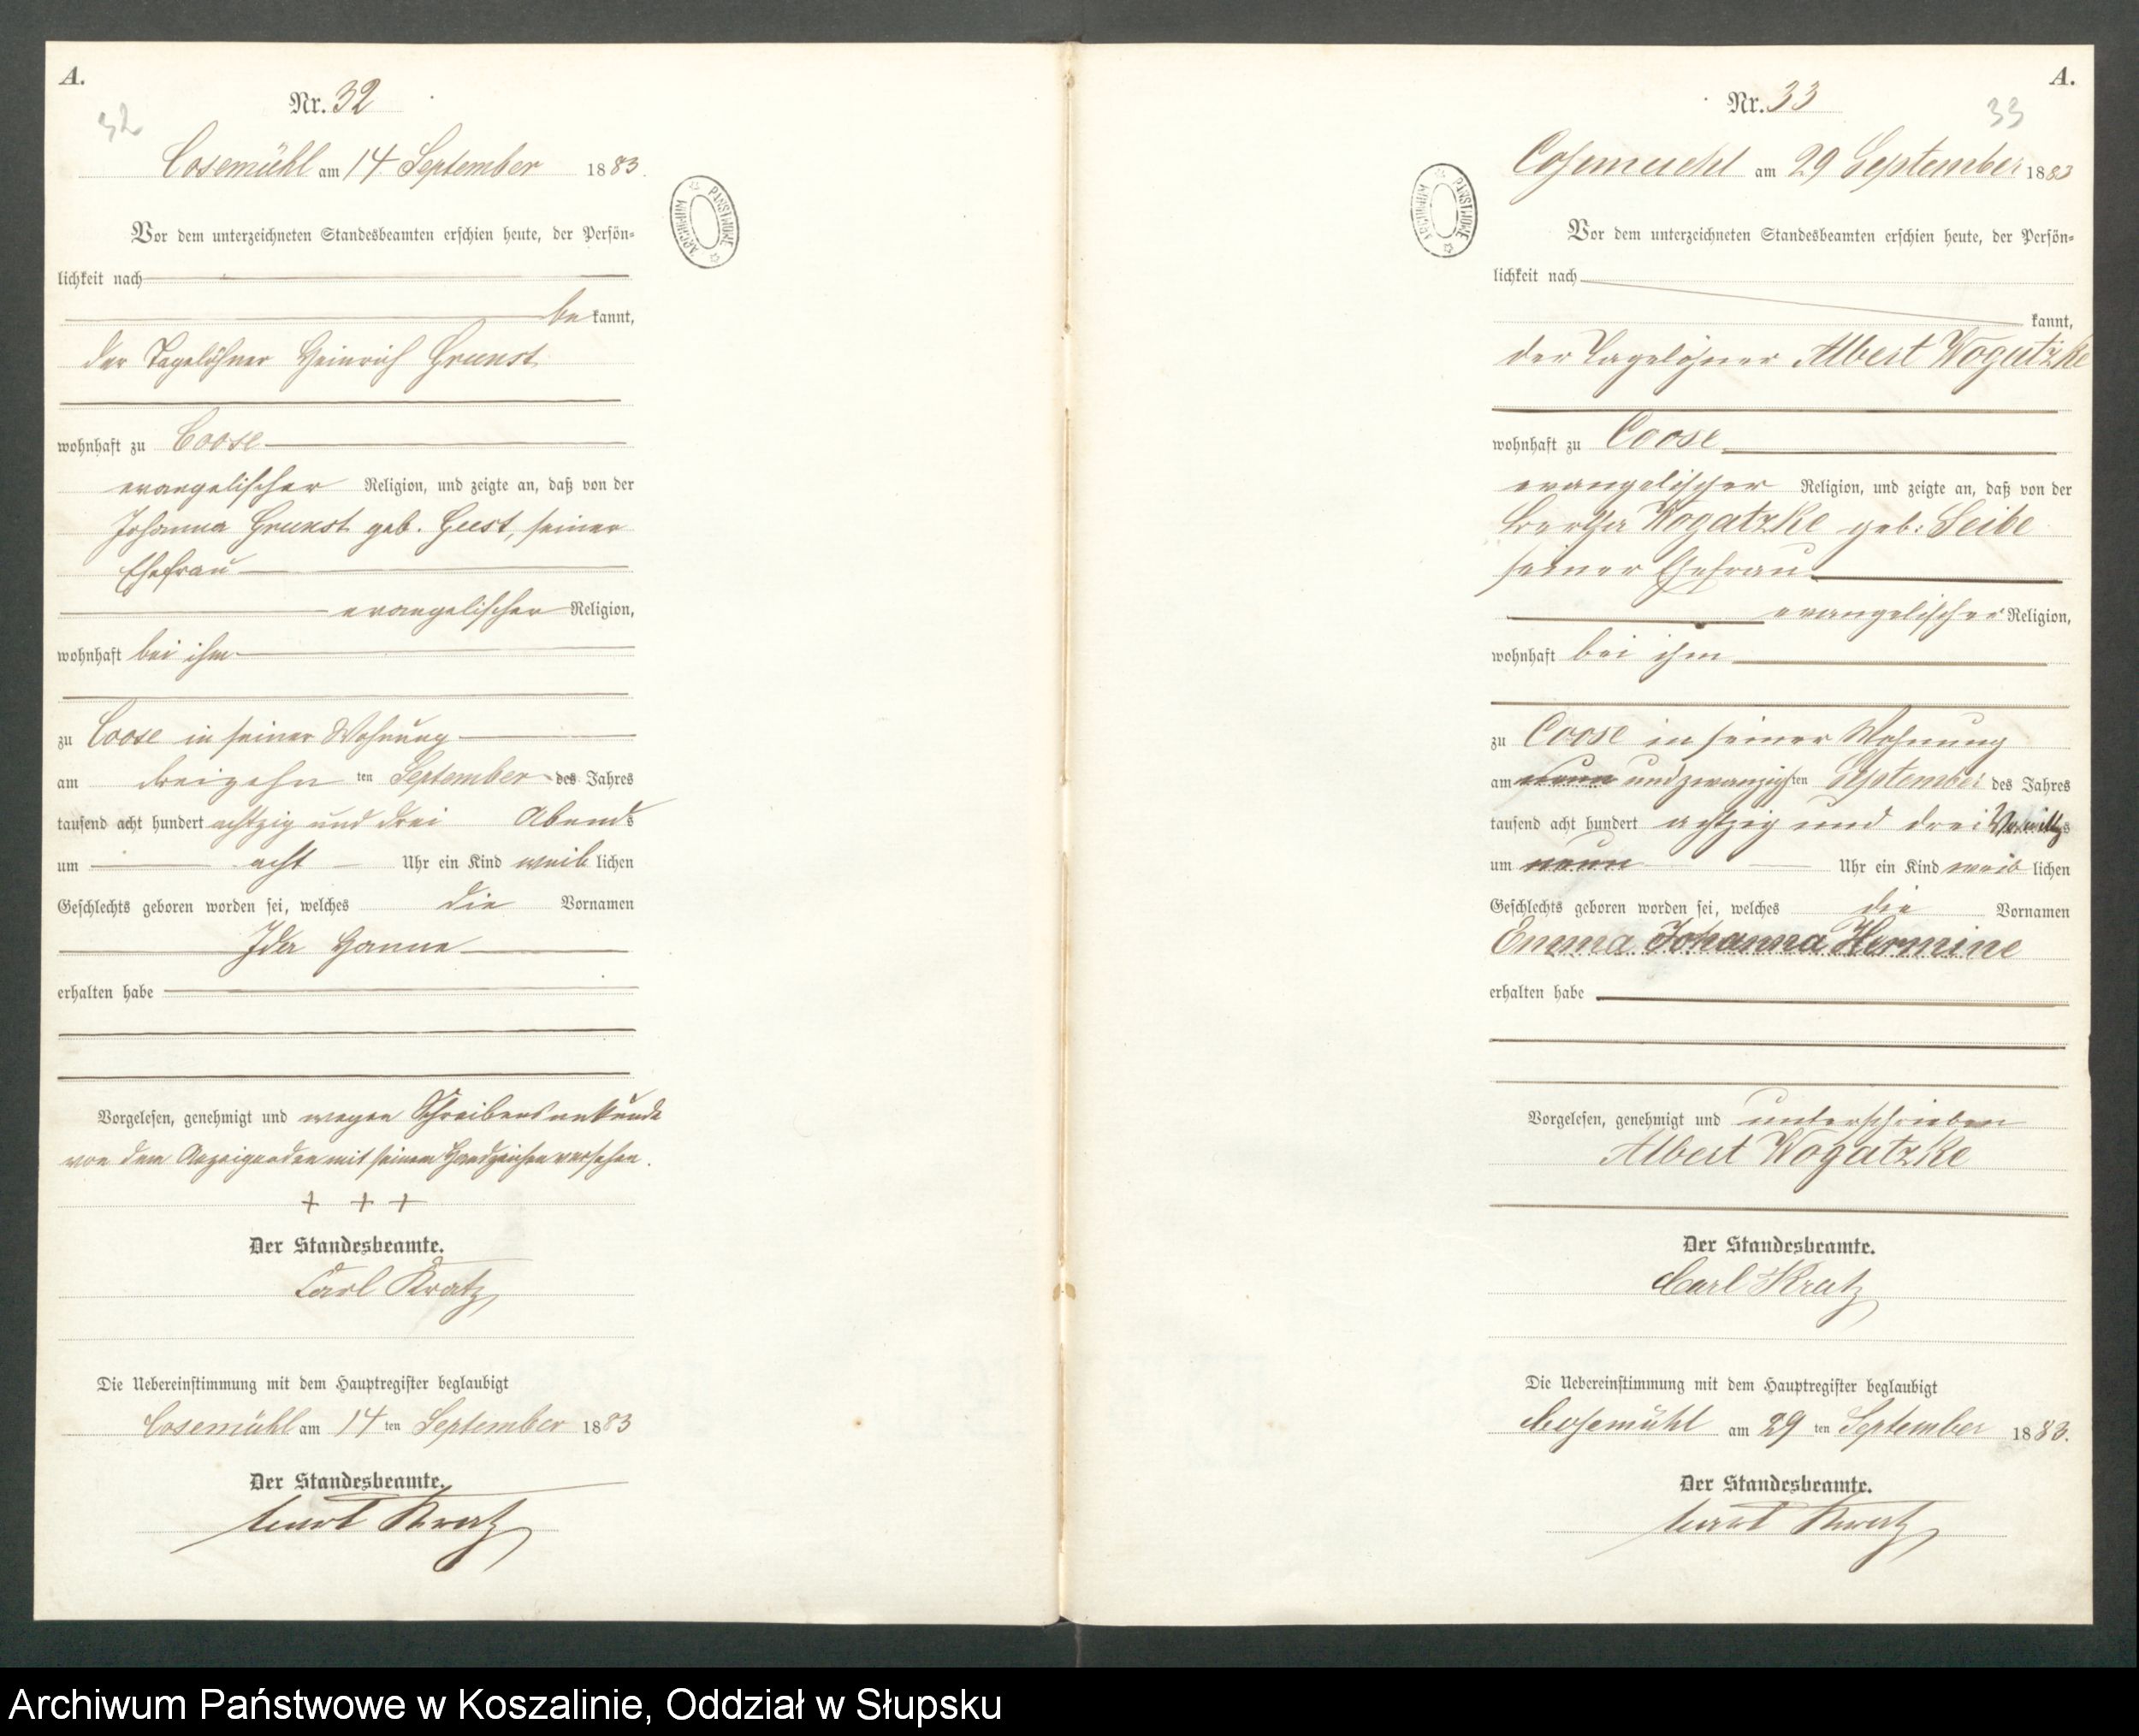 A.
Nr. 32
32
Cosemühl am 14 September 1883.
Vor dem unterzeichneten Standesbeamten erschien heute, der Persön-
lichkeit nach
be kannt,
der Tagelöhner Heinrich Grunst
wohnhaft zu Coose
evangelischer Religion, und zeigte an, daß von der
Johanna Grunst geb. Gust, seiner
Ehefrau
evangelischer Religion,
wohnhaft bei ihm
zu Coose in seiner Wohnung
am dreizehn ten September des Jahres
tausend acht hundert achtzig und drei Abends
um acht Uhr ein Kind weib lichen
Geschlechts geboren worden sei, welches die Vornamen
Ida Hanne
erhalten habe
Vorgelesen, genehmigt und wegen Schreibensunkunde
von dem Anzeigenden mit seinem Handzeichen versehen.
+ + +
Der Standesbeamte.
Carl Kratz
Die Uebereinstimmung mit dem Hauptregister beglaubigt
Cosemühl am 14 ten September 1883
Der Standesbeamte.
Carl Kratz
ARCHIWUM PAŃSTWOWE
A.
Nr. 33
33
Cosemuehl am 29 September 1883
ARCHIWUM PAŃSTWOWE
Vor dem unterzeichneten Standesbeamten erschien heute, der Persön-
lichkeit nach
kannt,
der Tagelöhner Albert Wogatzke
wohnhaft zu Coose
evangelischer Religion, und zeigte an, daß von der
Bertha Wogatzke geb: Leibe
seiner Ehefrau
evangelischer Religion,
wohnhaft bei ihm
zu Coose in seiner Wohnung
am neun und zwanzigsten September des Jahres
tausend acht hundert achtzig und drei Vormittgs
um neun Uhr ein Kind weib lichen
Geschlechts geboren worden sei, welches die Vornamen
Emma Johanna Hermine
erhalten habe
Vorgelesen, genehmigt und unterschrieben
Albert Wogatzke
Der Standesbeamte.
Carl Kratz
Die Uebereinstimmung mit dem Hauptregister beglaubigt
Cosemühl am 29 ten September 1883.
Der Standesbeamte.
Carl Kratz
Archiwum Państwowe w Koszalinie, Oddział w Słupsku